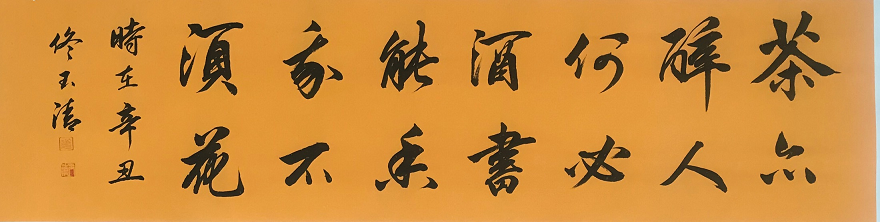 茶亦
醉人
何必
酒書
能香
我不
須花
時在辛丑
佟玉清